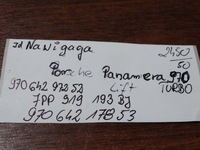 Jd Nawigaga
2450
50
Porsche Panamera 970
970 642 972 52 Lift TURBO
7PP 919 193 BJ
970 642 178 53